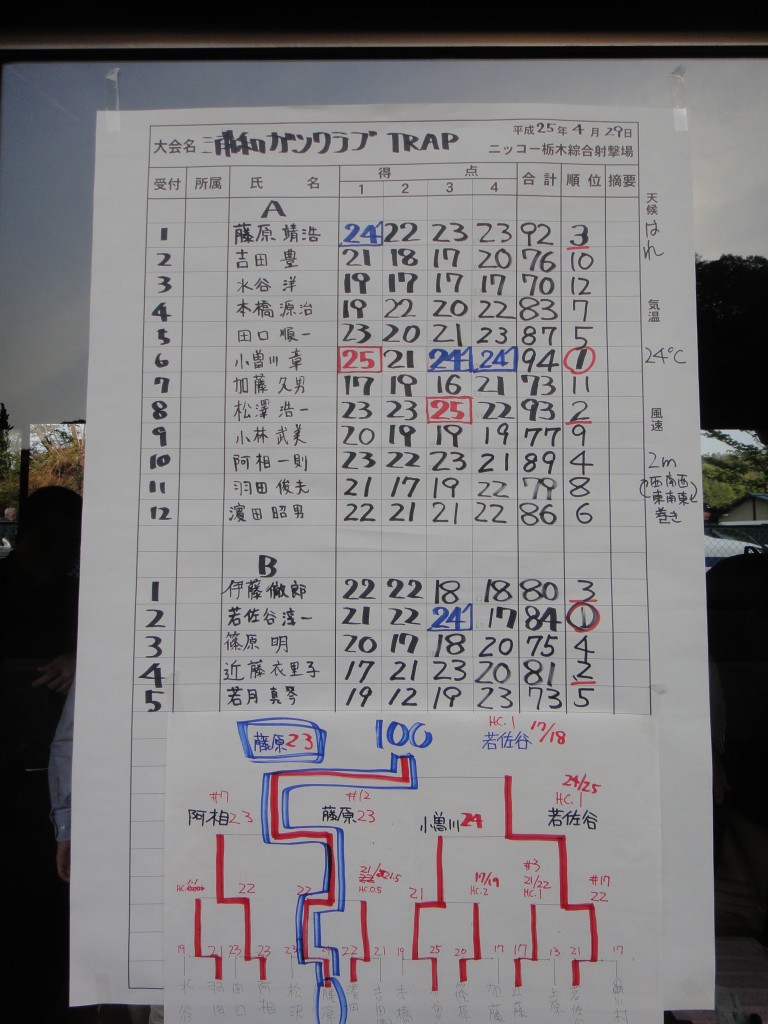 平成25年4月29日
大会名 浦和ガンクラブ TRAP ニッコー栃木綜合射撃場
受付 所属 氏名 得点 合計 順位 摘要
1 2 3 4
A
1 藤原 靖浩 24 22 23 23 92 3
2 吉田 豊 21 18 17 20 76 10
3 水谷 洋 19 17 17 17 70 12
4 本橋 源治 19 22 20 22 83 7
5 田口 順一 23 20 21 23 87 5
6 小曽川 章 25 21 24 24 94 1
7 加藤 久男 17 19 16 21 73 11
8 松澤 浩一 23 23 25 22 93 2
9 小林 武美 20 19 19 19 77 9
10 阿相 一則 23 22 23 21 89 4
11 羽田 俊夫 21 17 19 22 79 8
12 濱田 昭男 22 21 21 22 86 6
B
1 伊藤 徹郎 22 22 18 18 80 3
2 若佐谷 淳一 21 22 24 17 84 1
3 篠原 明 20 17 18 20 75 4
4 近藤 衣里子 17 21 23 20 81 2
5 若月 真琴 19 12 19 23 73 5
天候
はれ
気温
24℃
風速
2m
(西南西
東南東)
巻き
藤原23 100 HC.1 若佐谷 17/18
#7 阿相23 #12 藤原23 小曽川24 24/25 HC.1 若佐谷
22 22 21/22 21.5 HC.0.5 21 17/19 HC.2 #3 21/22 HC.1 #17 22
19 21 23 23 23 22 21 19 25 20 17 17 13 21 17
水谷 羽田 田口 阿相 松沢 藤原 本橋 篠原 加藤